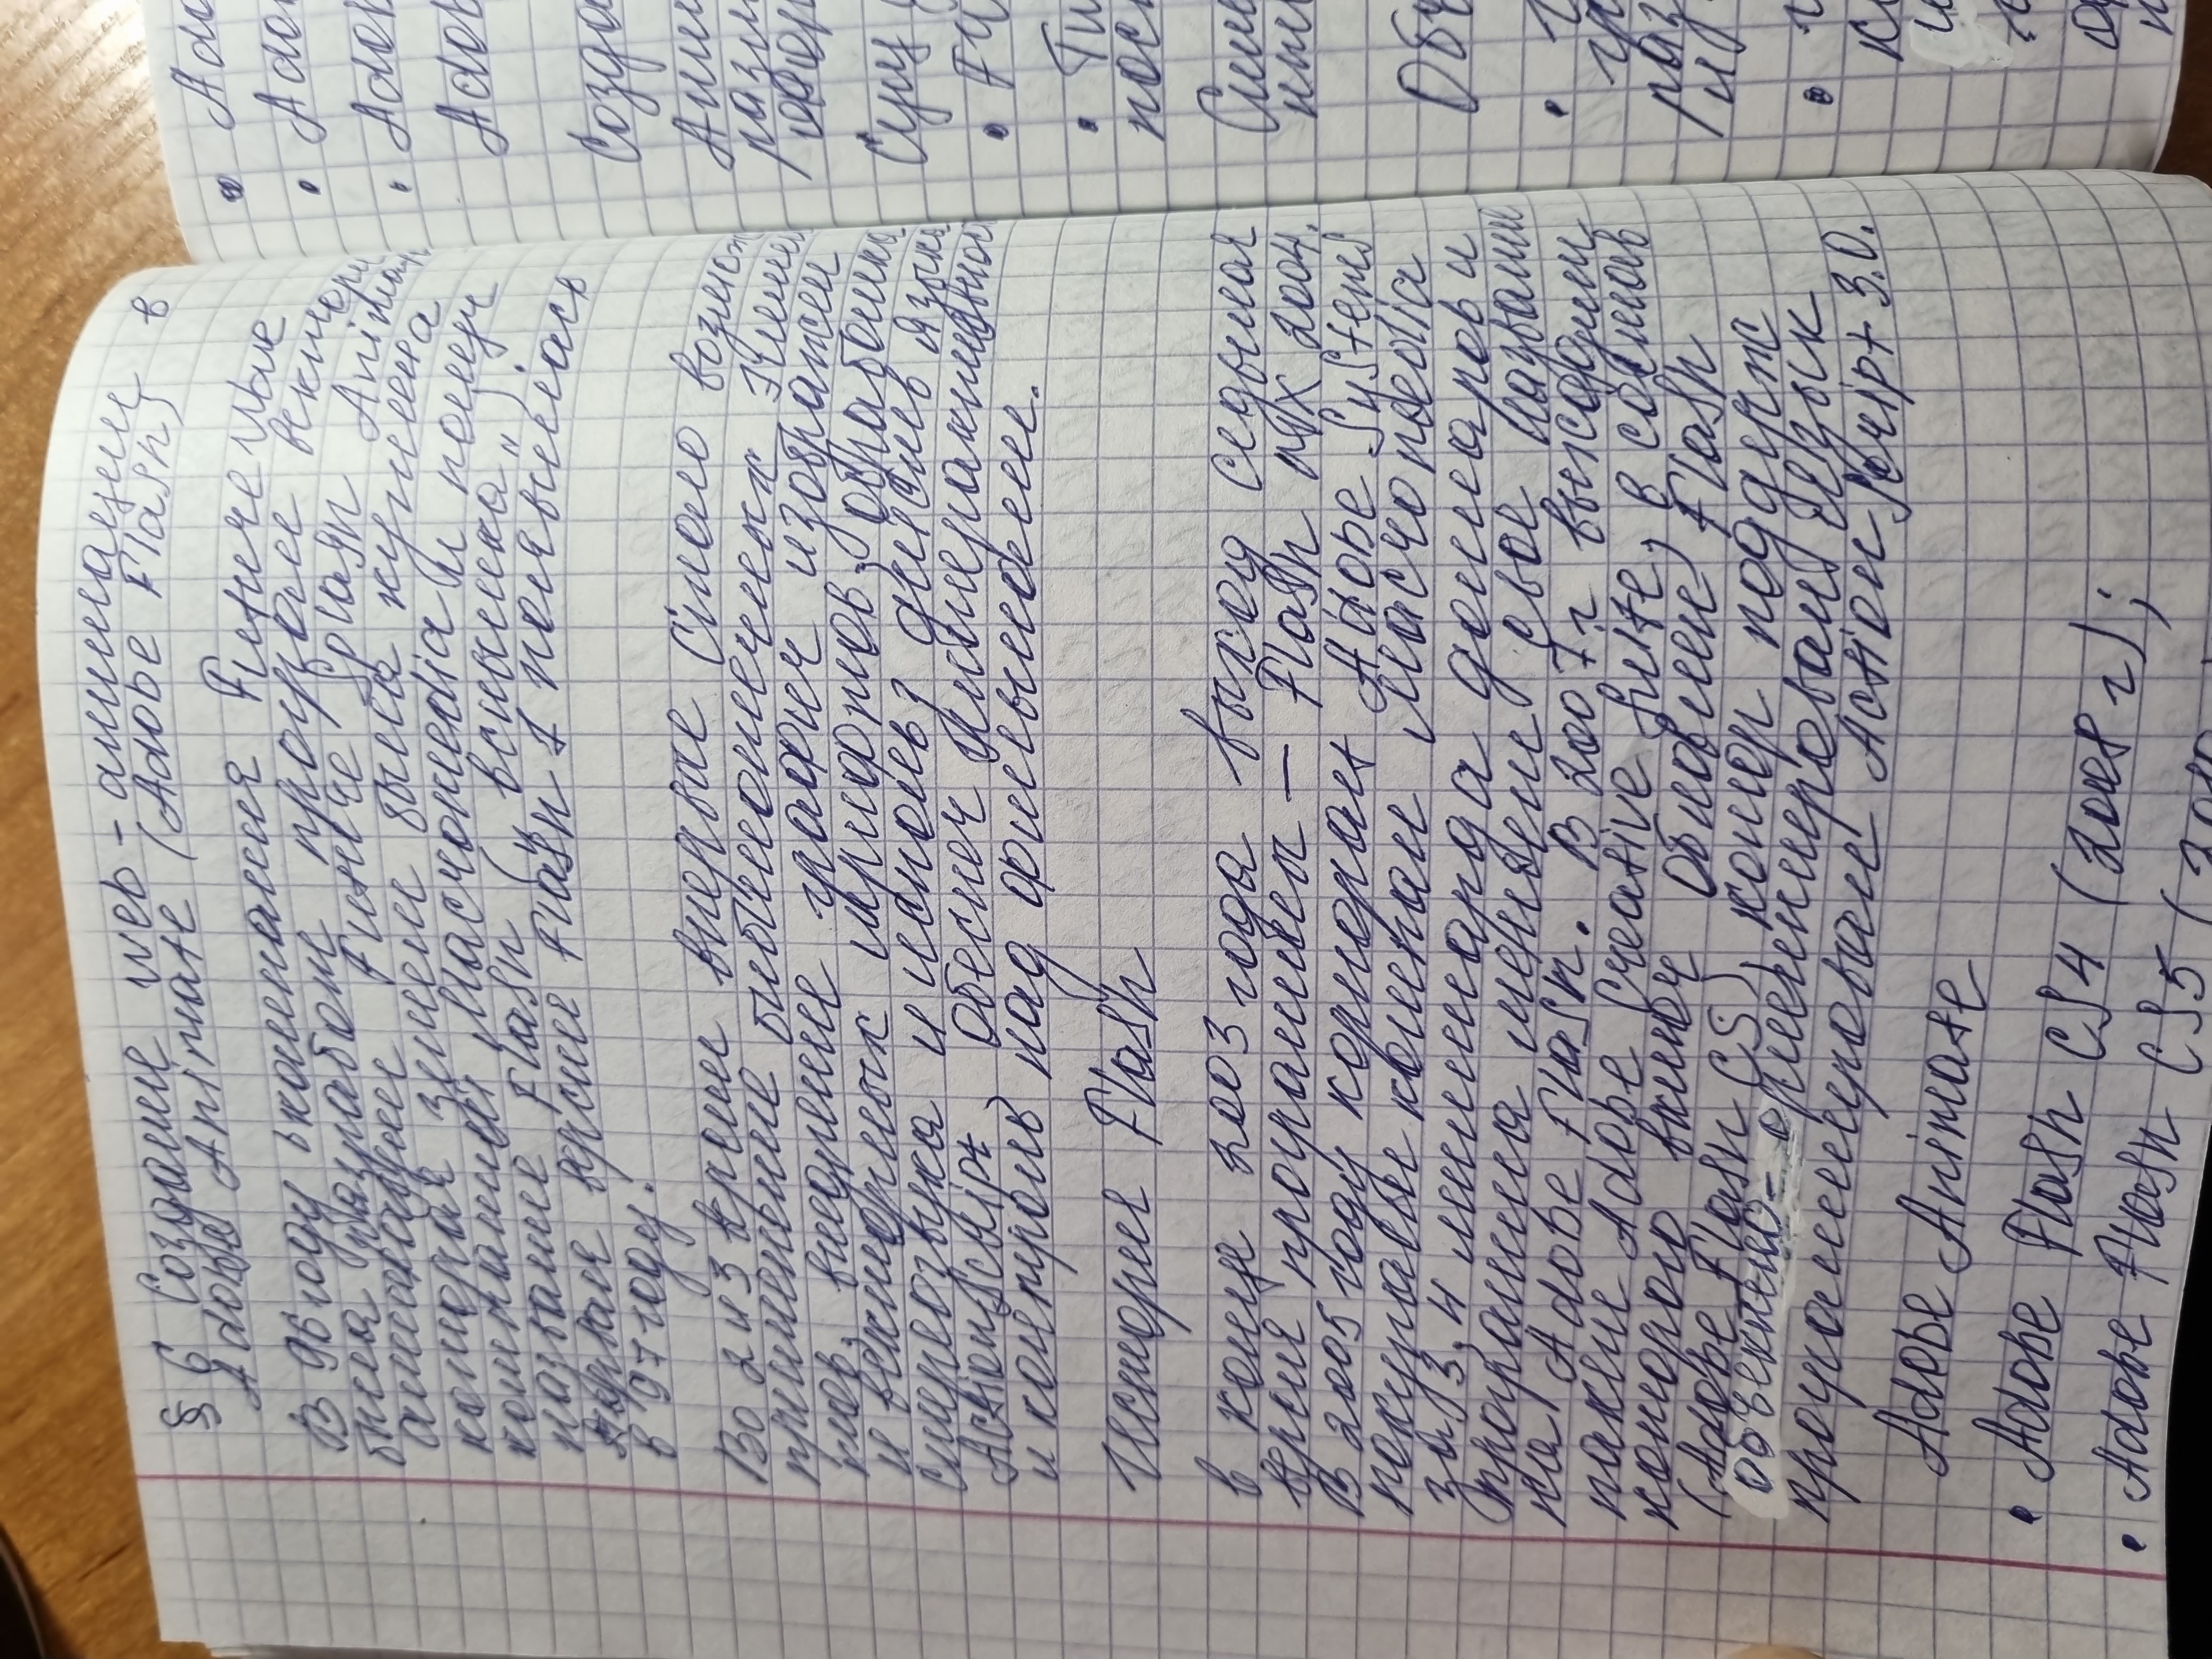 § 6 Создание web-анимации в
Adobe Animate (Adobe Flash)
В 96 году компания Future Wave
была разработ програм вектор
анимации Future Splash Animat
которая затем была куплена
компанией Macromedia и получ
название Flash („вспышка„).
Первая версия Flash 1 появилась
в 97 году.
Во 2 и 3 версии впервые стало возмож
применение библиотечных элемен
тов, внедрение графич изображен
и векторных шрифтов, обработка
стереозвука и использ действ языка
ActionScript, обеспеч интерактивност
и контроль над фильмами.
История Flash
в конце 2003 года выход седьмая
версия программы — Flash MX 2004.
В 2005 году корпорат Adobe Systems
покупает компан Macromedia
за 3,4 миллиарда долларов и
программа меняет свое название
на Adobe Flash. В 2007 г выходит
пакет Adobe Creative Suite, в состав
которого включ обновлен Flash
(Adobe Flash CS), котор поддерж
объектно-ориентирован язык
программирован Action Script 3.0.
Adobe Animate
• Adobe Flash CS4 (2008 г);
• Adobe Flash CS5 (2010
• Ado
• Ado
• Adob
Adob
Созда
Ани
разл
Сущ
•
• Ти
пос
Обч
•
гр
раз
и
•